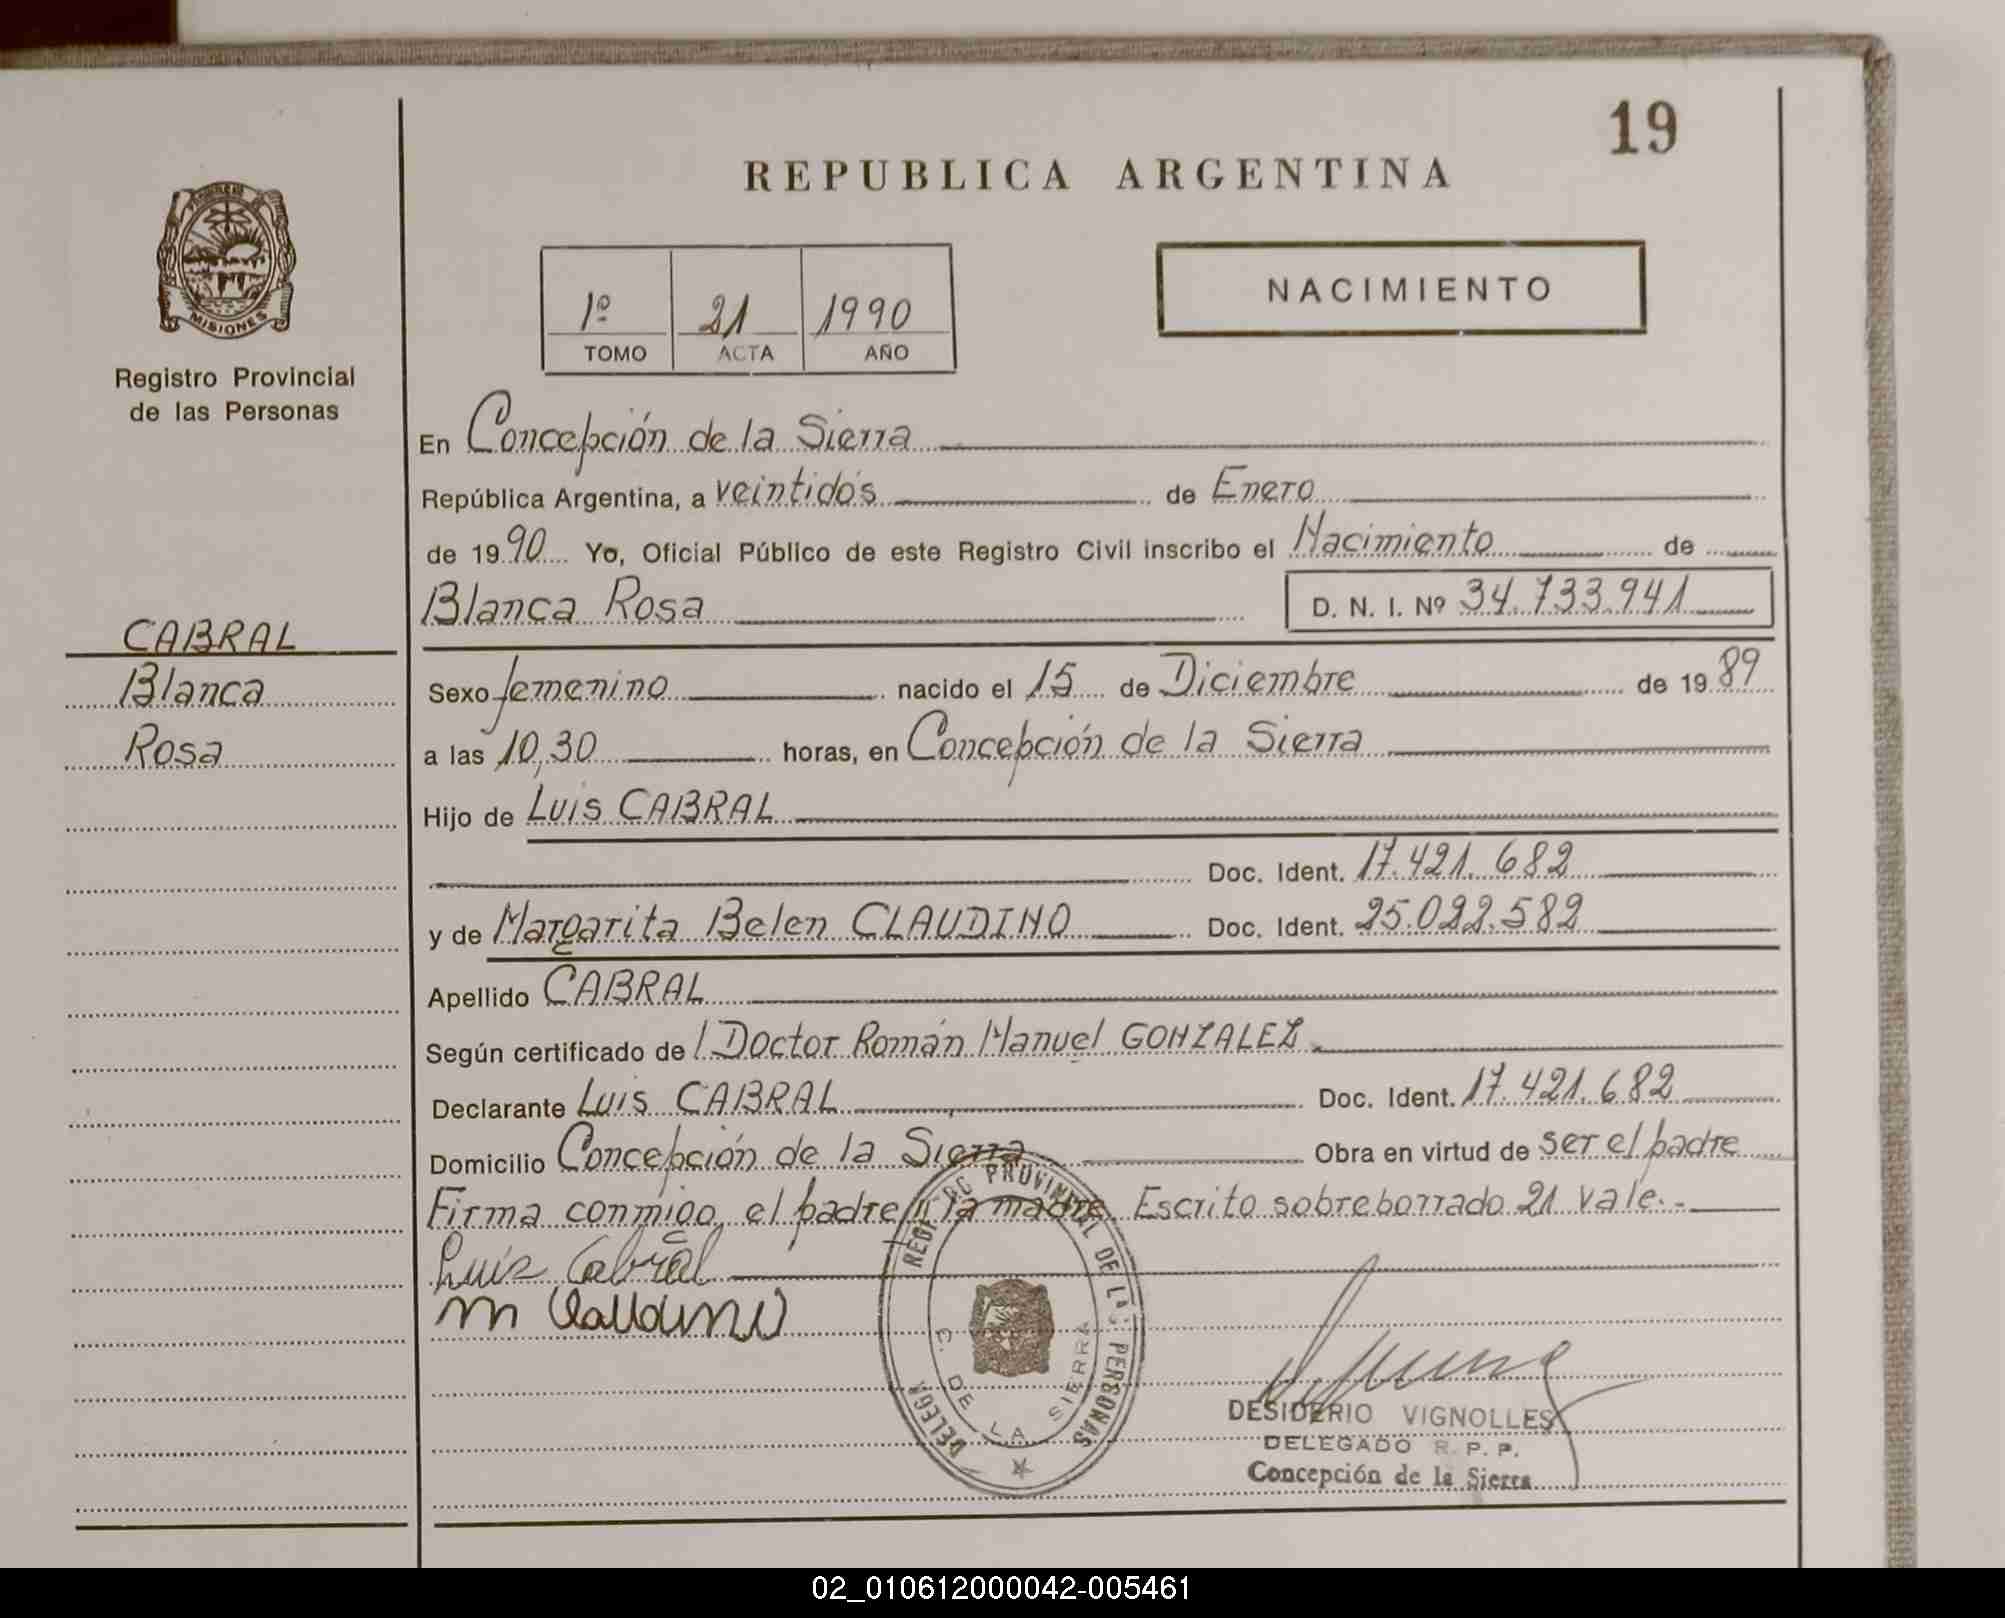 19
REPUBLICA ARGENTINA
MISIONES
Registro Provincial
de las Personas
1º 21 1990
TOMO ACTA AÑO
NACIMIENTO
En Concepción de la Sierra
República Argentina, a veintidós de Enero
de 1990 Yo, Oficial Público de este Registro Civil inscribo el Nacimiento de
Blanca Rosa D. N. I. Nº 34.733.941
CABRAL
Blanca
Rosa
Sexo femenino nacido el 15 de Diciembre de 1989
a las 10,30 horas, en Concepción de la Sierra
Hijo de Luis CABRAL
Doc. Ident. 17.421.682
y de Margarita Belen CLAUDINO Doc. Ident. 25.022.582
Apellido CABRAL
Según certificado de l Doctor Román Manuel GONZALEZ
Declarante Luis CABRAL Doc. Ident. 17.421.682
Domicilio Concepción de la Sierra Obra en virtud de ser el padre
Firma conmigo el padre y la madre. Escrito sobreborrado 21 vale.-
Luis Cabral
DE LAS PERSONAS
C. DE LA SIERRA
DESIDERIO VIGNOLLES
DELEGADO R. P. P.
Concepción de la Sierra
02_010612000042-005461